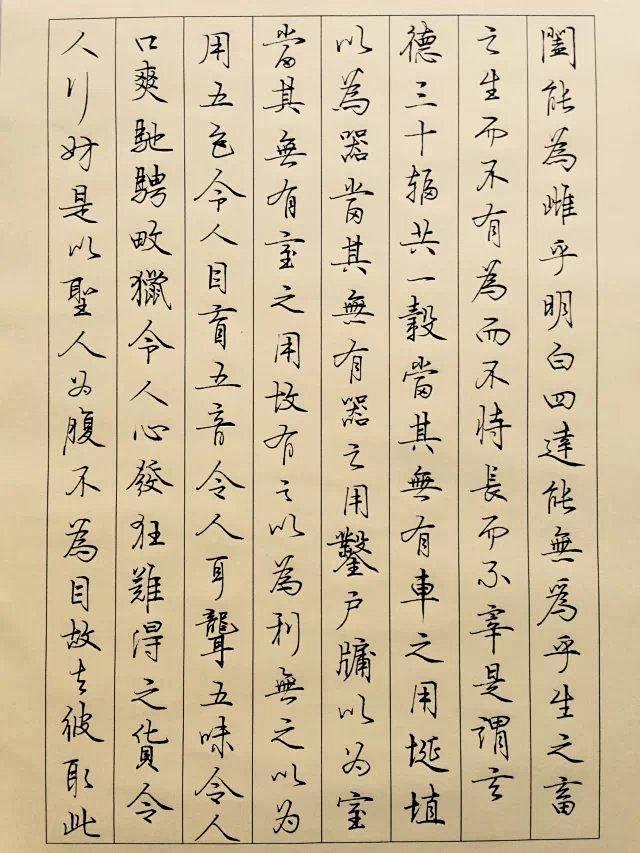 闔能為雌乎明白四達能無為乎生之畜
之生而不有為而不恃長而不宰是謂玄
德三十辐共一轂當其無有車之用埏埴
以為器當其無有器之用鑿戶牖以为室
當其無有室之用故有之以為利無之以为
用五色令人目盲五音令人耳聾五味令人
口爽馳騁畋獵令人心發狂難得之貨令
人行妨是以聖人为腹不為目故去彼取此